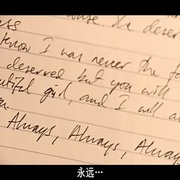 ess
use the deser
know I was never the fa
deserved but you will
tiful girl, and I will a
Always, Always, Alway
永远…